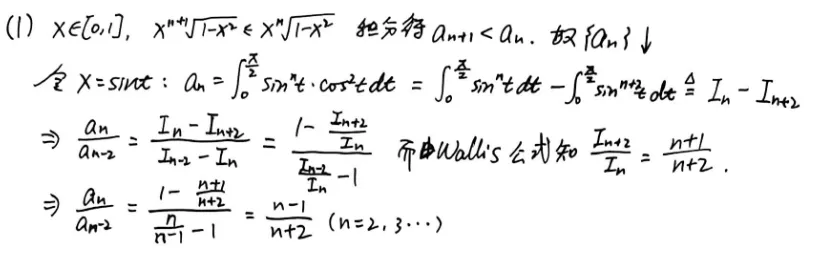 (1) x∈[0,1], x^{n+1}√(1-x²) ≤ x^n√(1-x²) 积分得 a_{n+1} < a_n. 故{a_n}↓
令 x=sint : a_n = ∫_0^{π/2} sin^n t·cos²t dt = ∫_0^{π/2} sin^n t dt - ∫_0^{π/2} sin^{n+2} t dt ≜ I_n - I_{n+2}
⇒ a_n/a_{n-2} = (I_n - I_{n+2})/(I_{n-2} - I_n) = (1 - I_{n+2}/I_n)/(I_{n-2}/I_n - 1) 而由Wallis公式知 I_{n+2}/I_n = (n+1)/(n+2).
⇒ a_n/a_{n-2} = (1 - (n+1)/(n+2))/(n/(n-1) - 1) = (n-1)/(n+2) (n=2, 3···)